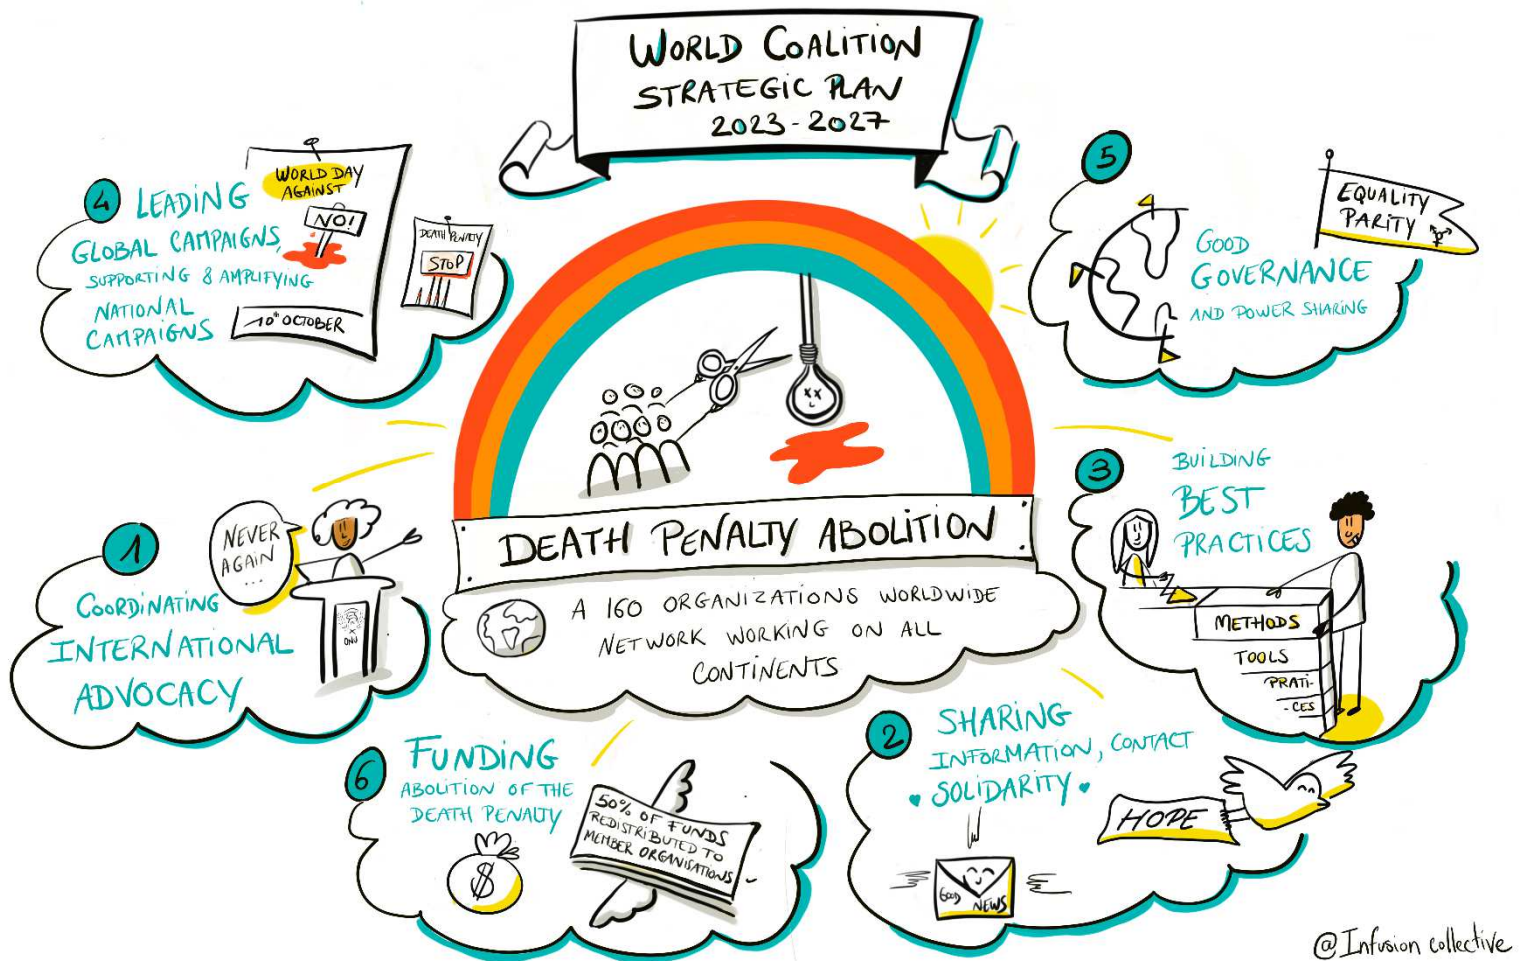 WORLD COALITION
STRATEGIC PLAN
2023 - 2027
4
LEADING
GLOBAL CAMPAIGNS,
SUPPORTING & AMPLIFYING
NATIONAL
CAMPAIGNS
WORLD DAY
AGAINST
NO!
10th OCTOBER
DEATH PENALTY
STOP
5
GOOD
GOVERNANCE
AND POWER SHARING
EQUALITY
PARITY
DEATH PENALTY ABOLITION
A 160 ORGANIZATIONS WORLDWIDE
NETWORK WORKING ON ALL
CONTINENTS
1
COORDINATING
INTERNATIONAL
ADVOCACY
NEVER
AGAIN
...
ONU
3
BUILDING
BEST
PRACTICES
METHODS
TOOLS
PRATI-
-CES
6
FUNDING
ABOLITION OF THE
DEATH PENALTY
$
50% OF FUNDS
REDISTRIBUTED TO
MEMBER ORGANISATIONS
2
SHARING
INFORMATION, CONTACT
♥ SOLIDARITY ♥
HOPE
GOOD NEWS
@Infusion collective